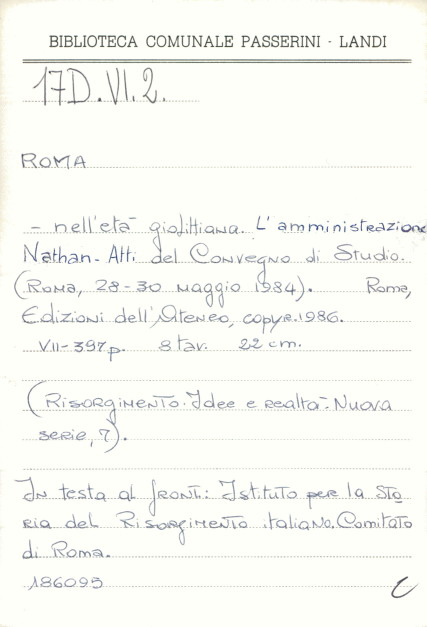 BIBLIOTECA COMUNALE PASSERINI - LANDI
17D.VI.2.
ROMA
- nell'età giolittiana. L'amministrazione
Nathan - Atti del Convegno di Studio.
(Roma, 28-30 maggio 1984). Roma,
Edizioni dell'Ateneo, copyr. 1986.
VII-397p. 8 tav. 22 cm.
(Risorgimento. Idee e realtà. Nuova
serie, 7).
In testa al front.: Istituto per la Sto
ria del Risorgimento italiano. Comitato
di Roma.
186095